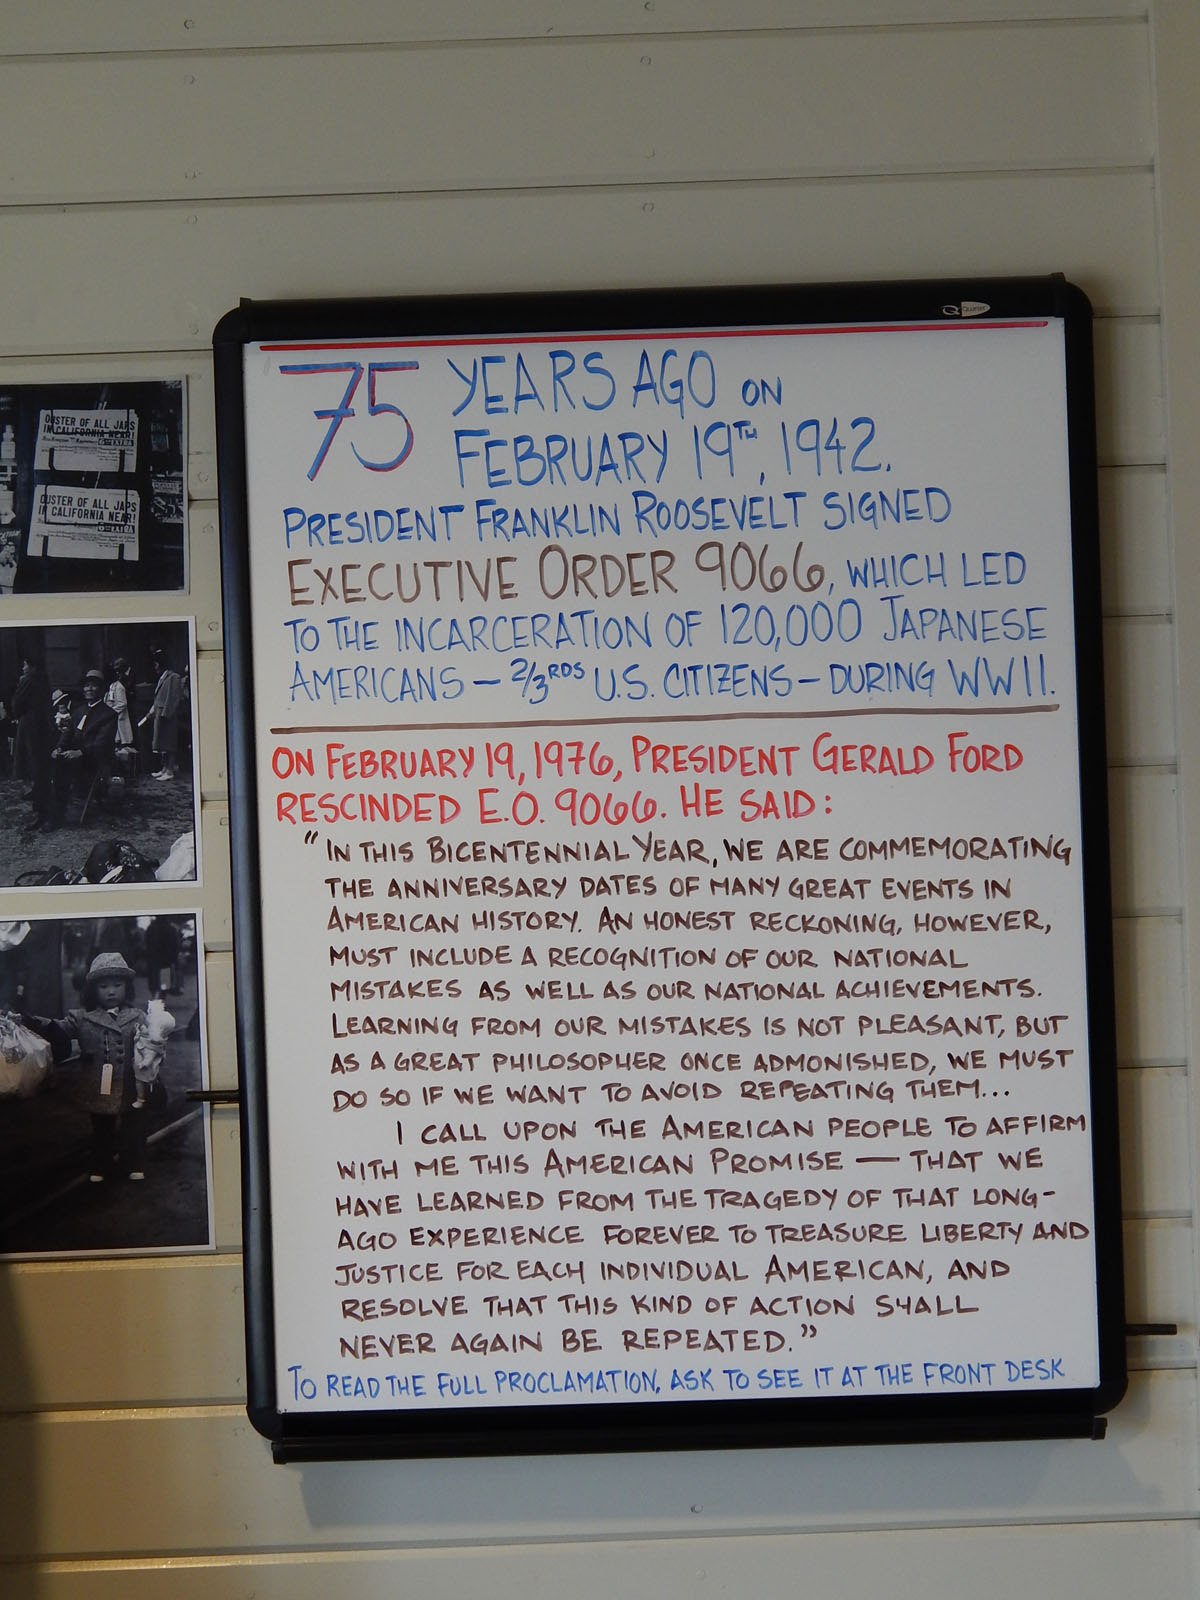 OUSTER OF ALL JAPS
IN CALIFORNIA NEAR!
EXTRA
OUSTER OF ALL JAPS
IN CALIFORNIA NEAR!
EXTRA
75 YEARS AGO ON
FEBRUARY 19TH, 1942.
PRESIDENT FRANKLIN ROOSEVELT SIGNED
EXECUTIVE ORDER 9066, WHICH LED
TO THE INCARCERATION OF 120,000 JAPANESE
AMERICANS — 2/3RDS U.S. CITIZENS — DURING WWII.
ON FEBRUARY 19, 1976, PRESIDENT GERALD FORD
RESCINDED E.O. 9066. HE SAID:
"IN THIS BICENTENNIAL YEAR, WE ARE COMMEMORATING
THE ANNIVERSARY DATES OF MANY GREAT EVENTS IN
AMERICAN HISTORY. AN HONEST RECKONING, HOWEVER,
MUST INCLUDE A RECOGNITION OF OUR NATIONAL
MISTAKES AS WELL AS OUR NATIONAL ACHIEVEMENTS.
LEARNING FROM OUR MISTAKES IS NOT PLEASANT, BUT
AS A GREAT PHILOSOPHER ONCE ADMONISHED, WE MUST
DO SO IF WE WANT TO AVOID REPEATING THEM...
I CALL UPON THE AMERICAN PEOPLE TO AFFIRM
WITH ME THIS AMERICAN PROMISE — THAT WE
HAVE LEARNED FROM THE TRAGEDY OF THAT LONG-
AGO EXPERIENCE FOREVER TO TREASURE LIBERTY AND
JUSTICE FOR EACH INDIVIDUAL AMERICAN, AND
RESOLVE THAT THIS KIND OF ACTION SHALL
NEVER AGAIN BE REPEATED."
TO READ THE FULL PROCLAMATION, ASK TO SEE IT AT THE FRONT DESK